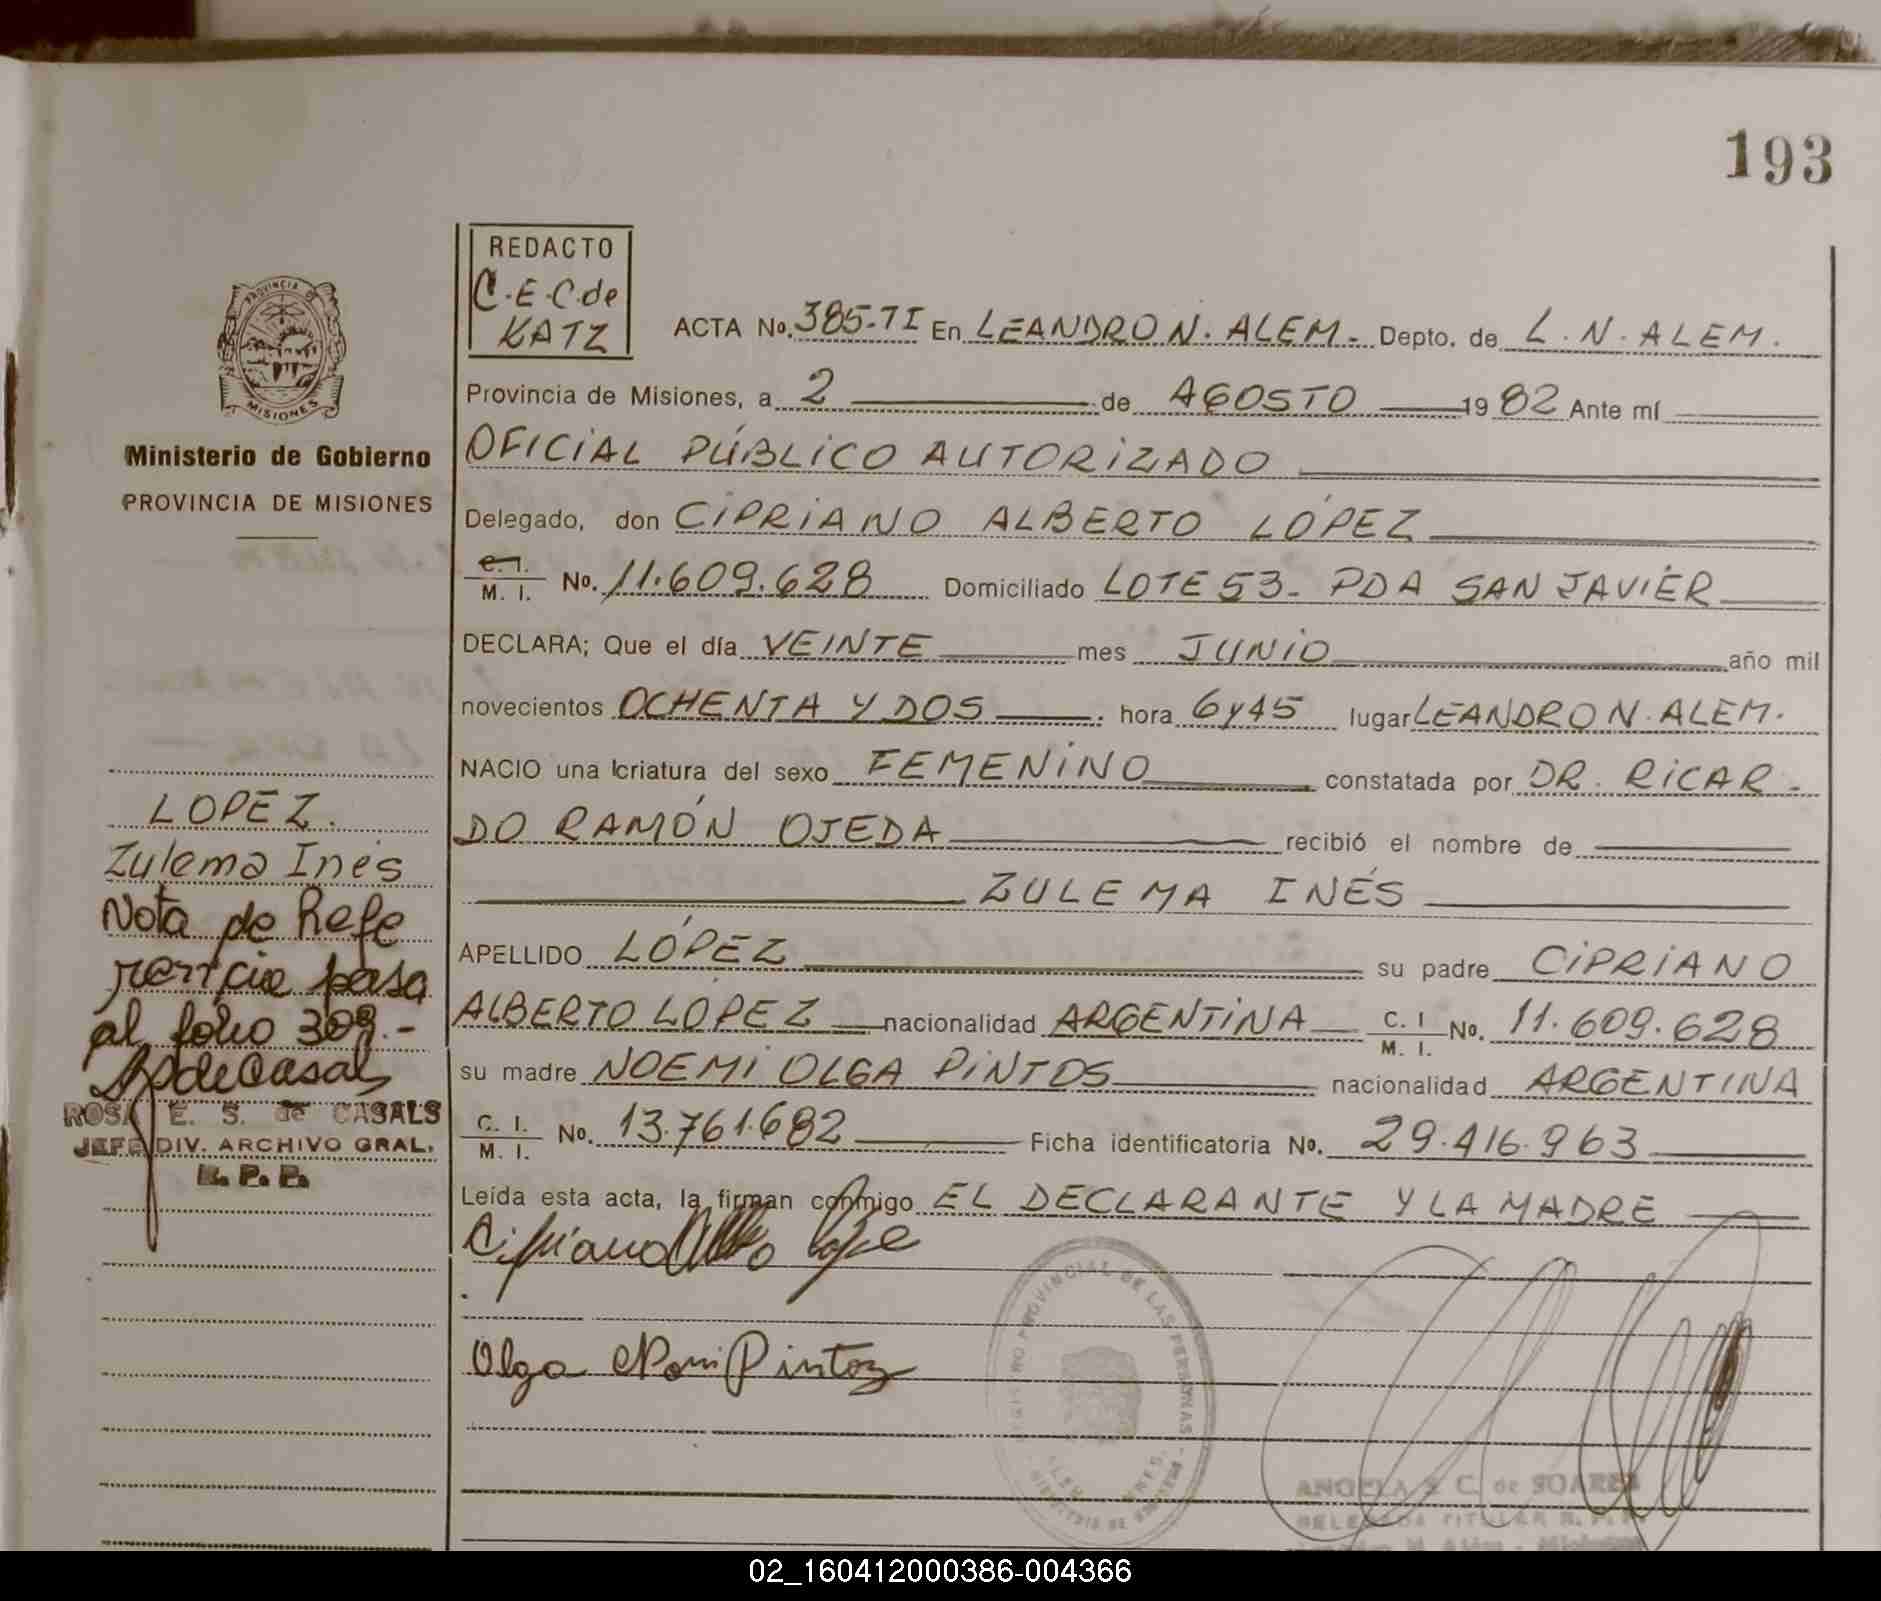 193
REDACTO
C.E.C.de
KATZ
ACTA No. 385-TI En LEANDRO N. ALEM. Depto. de L.N. ALEM.
Provincia de Misiones, a 2 de AGOSTO 1982 Ante mí
OFICIAL PÚBLICO AUTORIZADO
Delegado, don CIPRIANO ALBERTO LÓPEZ
C. I.
M. I. No. 11.609.628 Domiciliado LOTE 53- PDA SAN JAVIER
DECLARA; Que el día VEINTE mes JUNIO año mil
novecientos OCHENTA Y DOS. hora 6y45 lugar LEANDRO N. ALEM.
NACIO una criatura del sexo FEMENINO constatada por DR. RICAR-
DO RAMÓN OJEDA recibió el nombre de
ZULEMA INÉS
APELLIDO LÓPEZ su padre CIPRIANO
ALBERTO LÓPEZ nacionalidad ARGENTINA C. I. M. I. No. 11.609.628
su madre NOEMI OLGA PINTOS nacionalidad ARGENTINA
C. I. M. I. No. 13.761.682 Ficha identificatoria No. 29.416.963
Leída esta acta, la firman conmigo EL DECLARANTE Y LA MADRE
Cipriano Alberto Lópe
Olga Noemi Pintos
PROVINCIA DE
MISIONES
Ministerio de Gobierno
PROVINCIA DE MISIONES
LOPEZ.
Zulema Inés
Nota de Refe
rencia pasa
al folio 309.-
RSdeCasals
ROSA E. S. de CASALS
JEFE DIV. ARCHIVO GRAL.
R. P. P.
REGISTRO PROVINCIAL DE LAS PERSONAS
ANGELA S. C. de SOARES
DELEGADA TITULAR R. P. P.
02_160412000386-004366